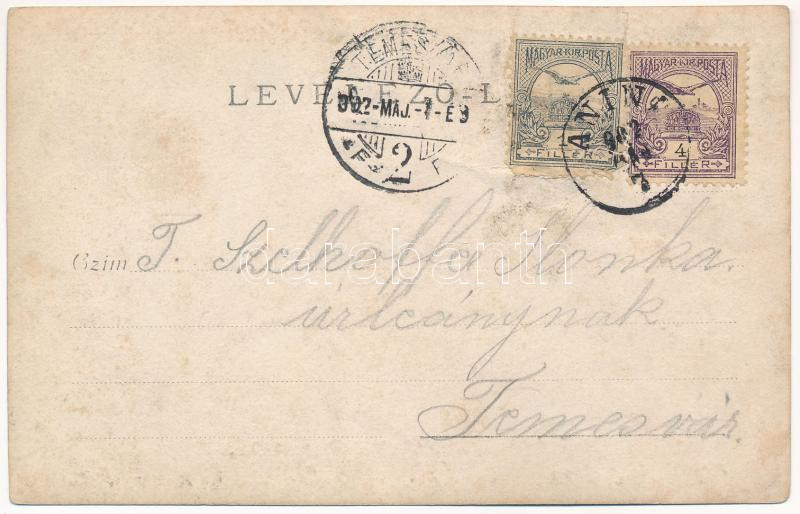 LEVELEZŐ-L
TEMESVÁR
902-MÁJ.-7-É9
2
MAGYAR KIR. POSTA
1
FILLÉR
MAGYAR KIR. POSTA
4
FILLÉR
ANINA
902
7
Czim T. Szelhoffa Ilonka.
úrleánynak
Temesvár.
darabanth